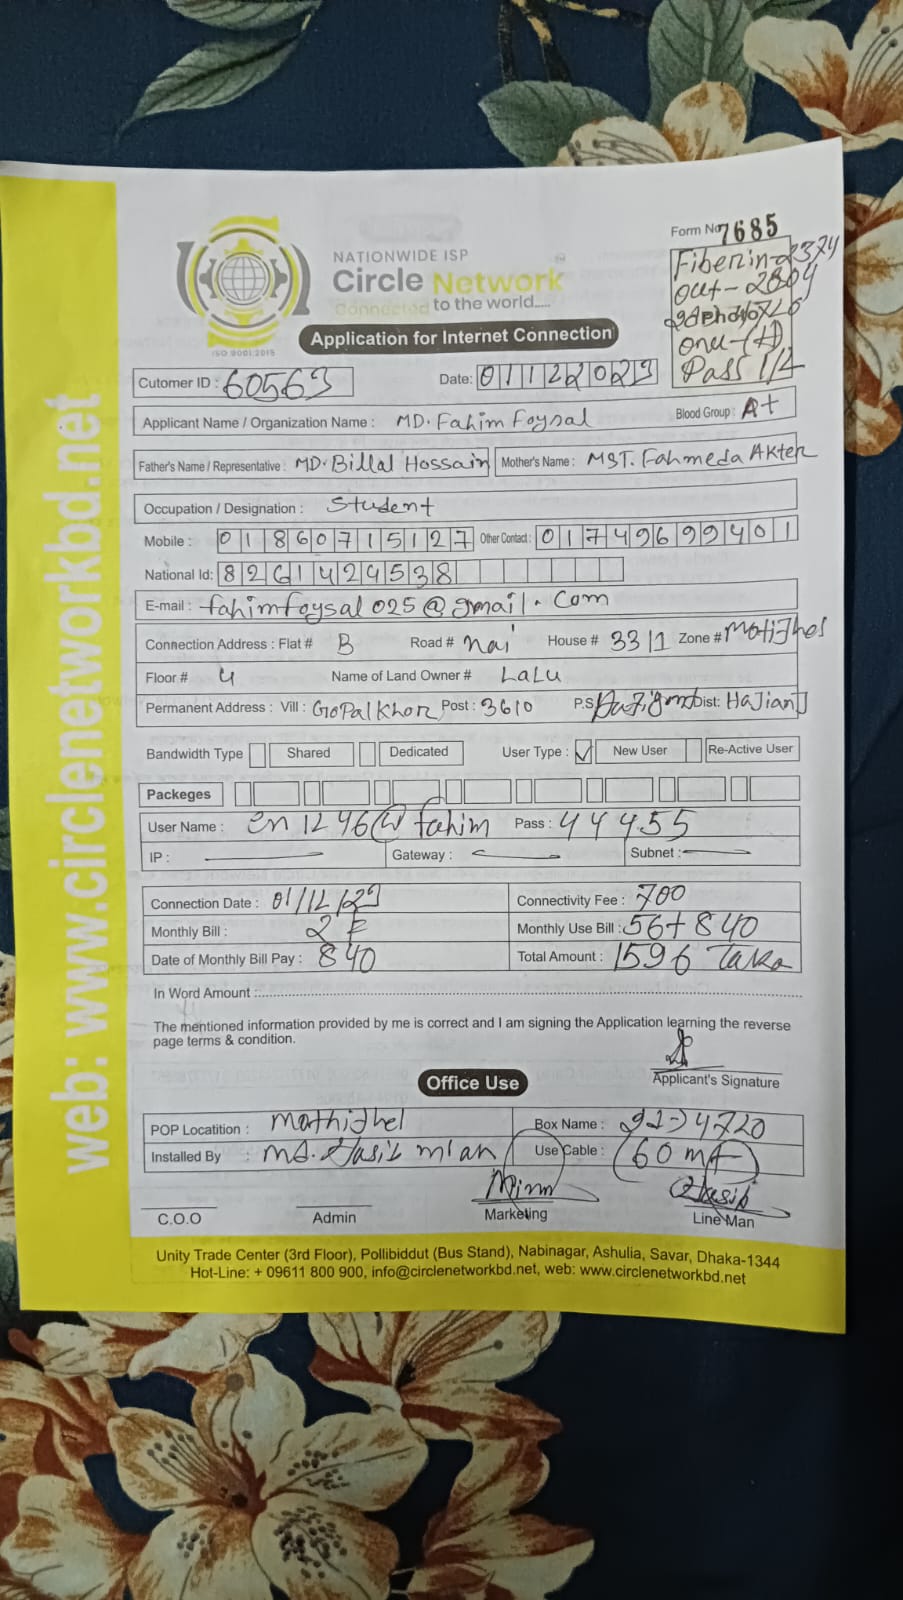 Form No 7685
NATIONWIDE ISP
Circle Network
Connected to the world.....
ISO 9001:2015
Application for Internet Connection
Fiber in - 2374
out - 2804
onu-(H)
Pass 1/2
Cutomer ID : 60563
Date: 01122023
Applicant Name / Organization Name : MD. Fahim Foysal Blood Group : A+
Father's Name / Representative : MD. Billal Hossain Mother's Name : MST. Fahmeda Akter
Occupation / Designation : Student
Mobile : 01860715127 Other Contact : 01749699401
National Id: 8261424538
E-mail : fahimfoysal025@gmail.com
Connection Address : Flat # B Road # nai House # 33/1 Zone # Motijhel
Floor # 4 Name of Land Owner # LaLu
Permanent Address : Vill : GoPalkhor Post : 3610 P.S Dist: HaJianJ
Bandwidth Type Shared Dedicated User Type : ✓ New User Re-Active User
Packeges
User Name : en1246@fahim Pass : 44455
IP : Gateway : Subnet :
Connection Date : 01/12/23 Connectivity Fee : 700
Monthly Bill : Monthly Use Bill : 56+840
Date of Monthly Bill Pay : 840 Total Amount : 1596 Taka
In Word Amount :
The mentioned information provided by me is correct and I am signing the Application learning the reverse
page terms & condition.
Applicant's Signature
Office Use
POP Locatition : Mothijhel Box Name : 4720
Installed By : Md. Hasib mian Use Cable : 60 mt
C.O.O Admin Marketing Line Man
Unity Trade Center (3rd Floor), Pollibiddut (Bus Stand), Nabinagar, Ashulia, Savar, Dhaka-1344
Hot-Line: + 09611 800 900, info@circlenetworkbd.net, web: www.circlenetworkbd.net
web: www.circlenetworkbd.net